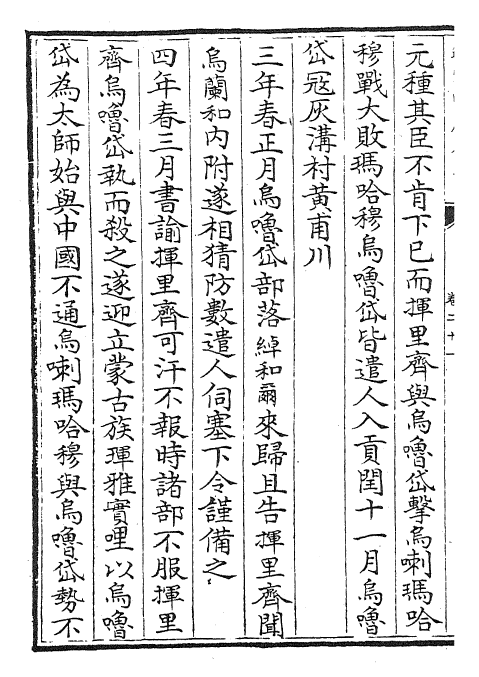 元種其臣不肯下已而揮里齊與烏嚕岱擊烏喇瑪哈
穆戰大敗瑪哈穆烏嚕岱皆遣人入貢閏十一月烏嚕
岱冦灰溝村黃甫川
三年春正月烏嚕岱部落綽和爾來歸且告揮里齊聞
烏蘭和内附遂相猜防數遣人伺塞下令謹備之
四年春三月書諭揮里齊可汗不報時諸部不服揮里
齊烏嚕岱執而殺之遂迎立蒙古族琿雅實哩以烏嚕
岱為太師始與中國不通烏喇瑪哈穆與烏嚕岱勢不
卷二十一